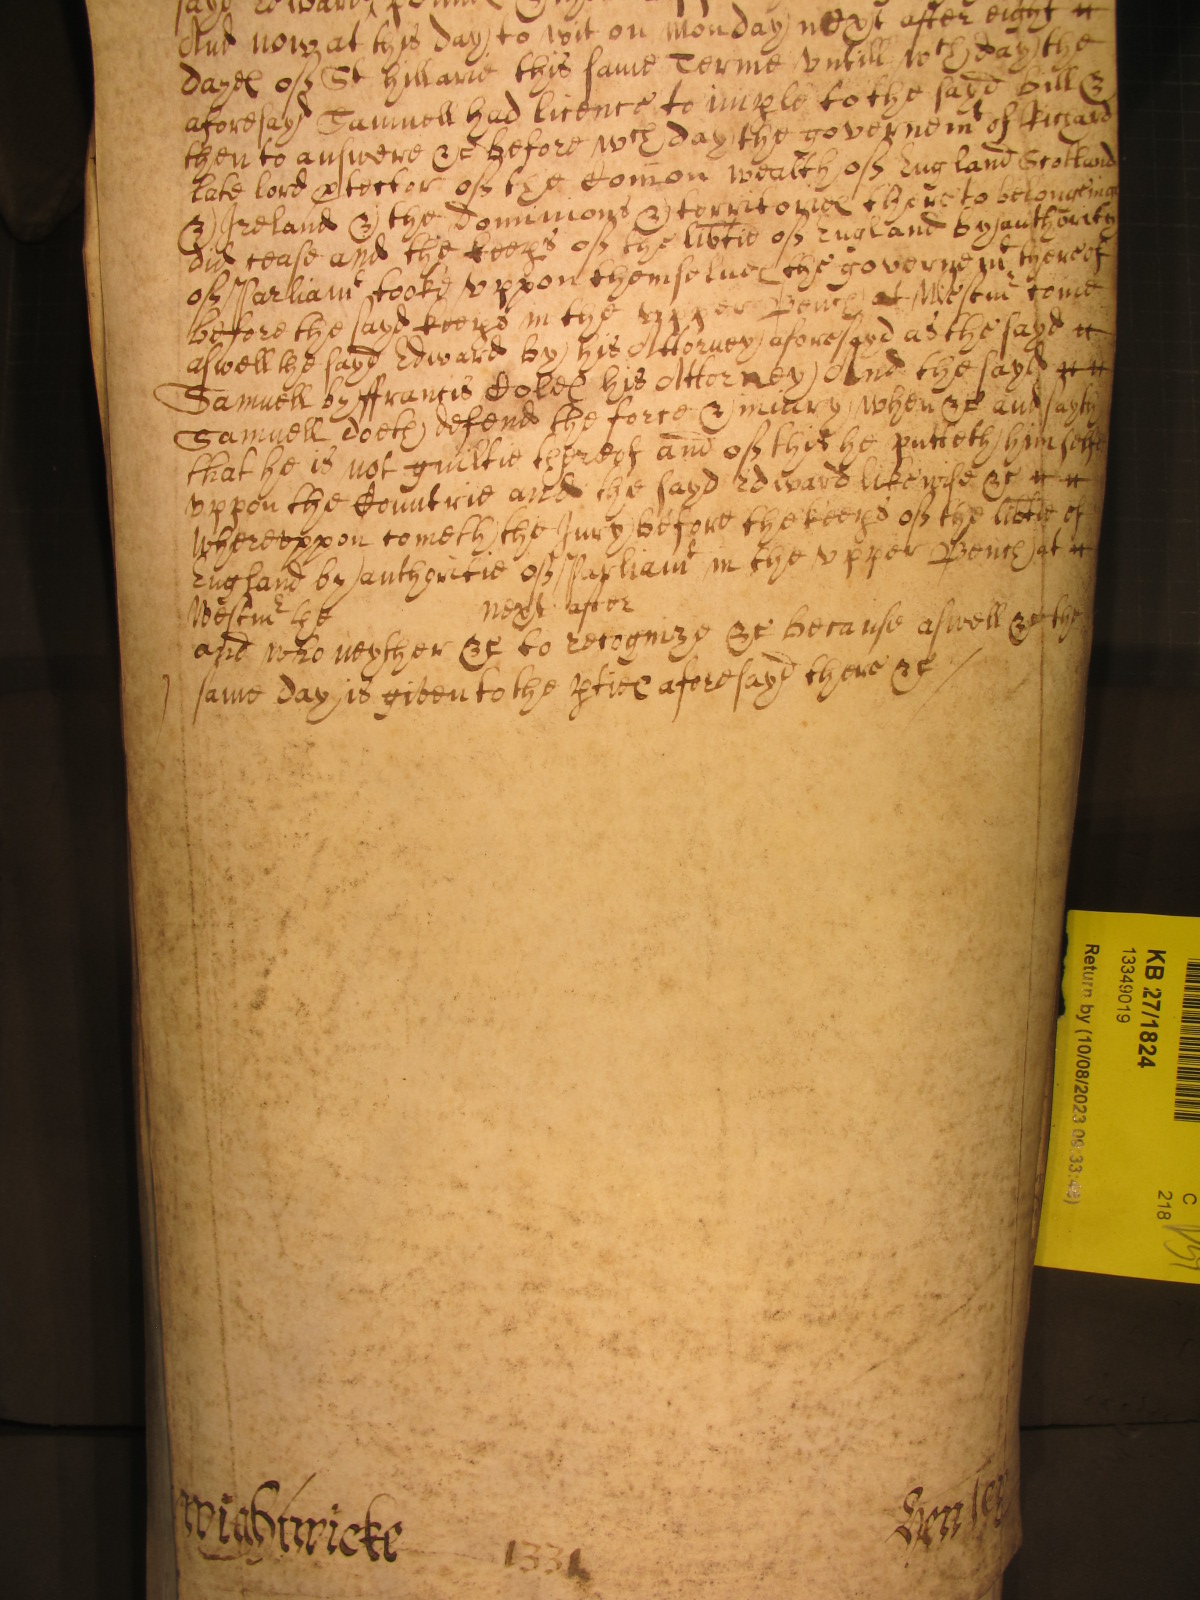 sayd Edward
And now at this day to wit on Monday next after eight
dayes of St Hillarie this same Terme untill wch day the
aforesayd Samuell had licence to imple to the sayd bill &
then to answere &c before wch day the governemt of Richard
late lord ptector of the Comon wealth of England Scotland
& Ireland & the dominions & territories thereto belonginge
did cease and the keeps of the libtie of England by authority
of Parliamt tooke uppon themselves the governemt thereof
before the sayd keeps in the upper Bench at Westmr come
aswell the sayd Edward by his Attorney aforesayd as the sayd
Samuell by ffrancis Coles his Attorney And the sayd
Samuell doeth defend the force & iniury when &c and sayth
that he is not guiltie thereof and of this he putteth himselfe
uppon the Countrie and the sayd Edward likewise &c
Whereuppon cometh the Jury before the keeps of the libtie of
England by authoritie of Parliamt in the upper Bench at
Westmr he next after
and who neyther &c to recognize &c because aswell &c the
same day is given to the pties aforesayd there &c
Wightwicke
1331
Henley
KB 27/1824
13349019
Return by (10/08/2023 09:33:49)
C
218